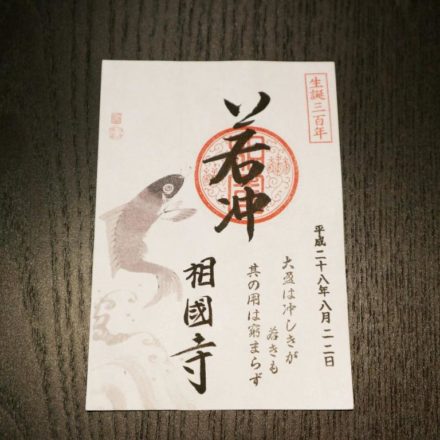 生誕三百年
若冲
平成二十八年八月二十二日
大盈は冲しきが
若きも
其の用は窮まらず
相國寺